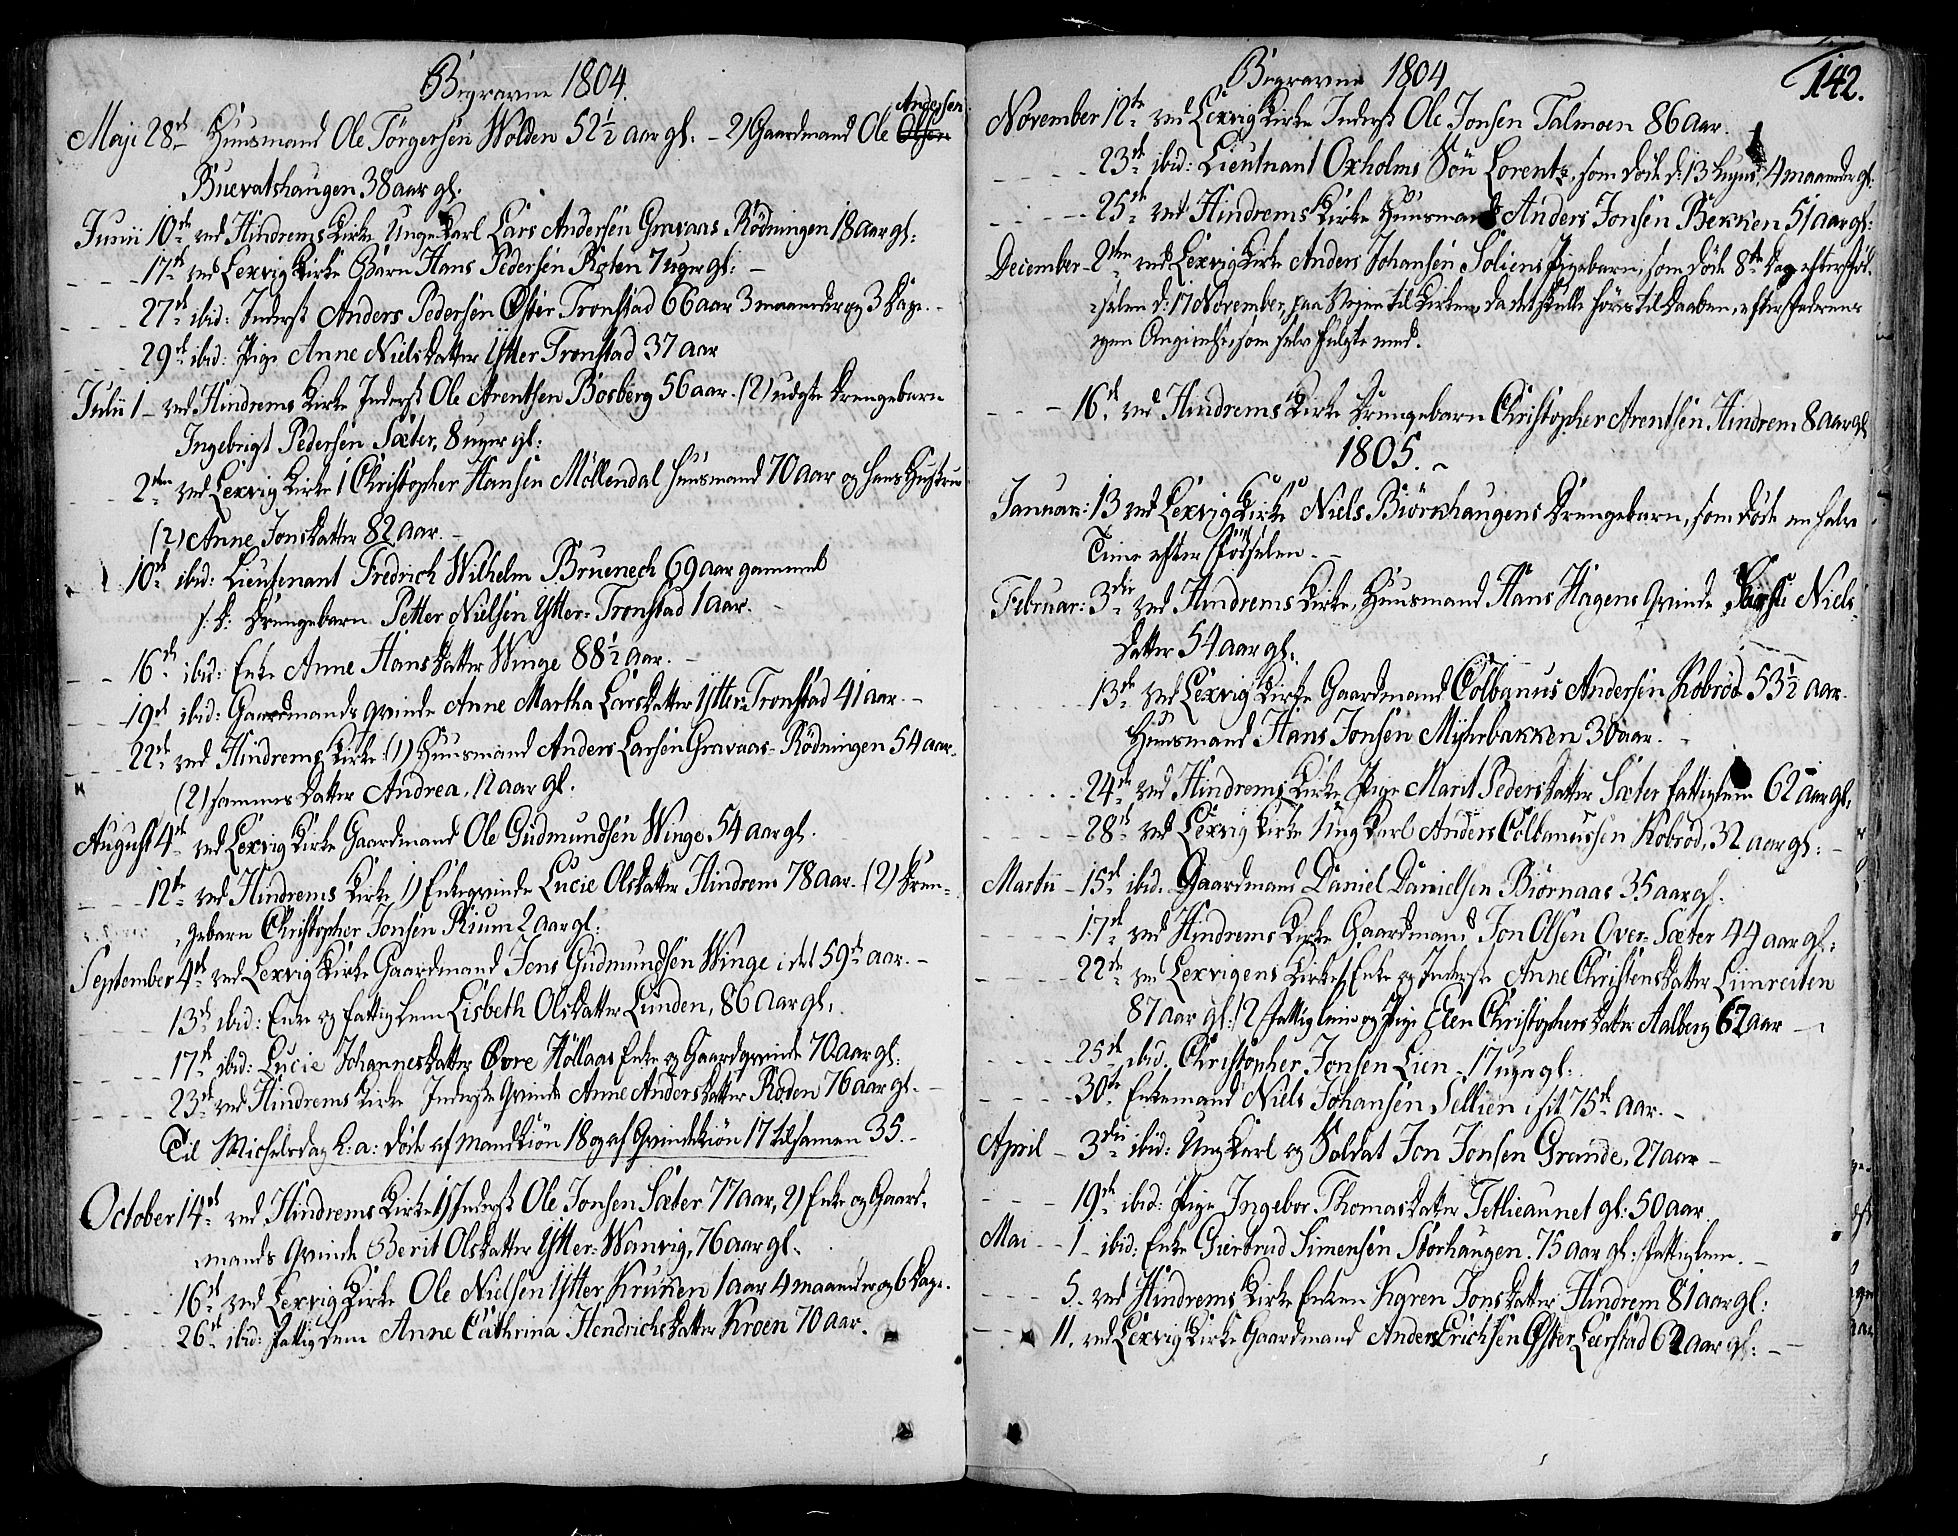 Begravne 1804.
Andersen
Maji 28de Huusmand Ole Törgersen Wolden 52½ aar gl: - 2) Gaardmand Ole Olsen
Buevatshaugen 38 aar gl.
Junii 10de ved Hindrems Kirke Unge Karl Lars Andersen Grevaas Rödningen 18 aar gl:
17de ved Lexvig Kirke Barn Hans Pedersen Roten 7 uger gl: -
27de ibid: Inderst Anders Pedersen Öster Tronstad 66 aar 3 maaneder og 3 Dage. -
29de ibid: Pige Anne Nielsdatter Ytter Tronstad 37 aar
Julii 1 - ved Hindrems Kirke Inderst Ole Arentsen Bosberg 56 aar. (2) udøbte Drengebarn
Ingebrigt Pedersen Sæter, 8 uger gl:
2den ved Lexvig Kirke 1 Christopher Hansen Möllendal Huusmand 70 aar og hans Hustrue
(2) Anne Jonsdatter 82 aar. -
10de ibid: Lieutenant Fredrich Wilhelm Bruenech 69 aar gammel
s: d: Drengebarn Petter Nielsen Ytter-Tronstad 1 aar. -
16de ibid: Enke Anne Hansdatter Winge 88½ aar. -
19de ibid: Gaardmands Qvinde Anne Martha Larsdatter Ytter-Tronstad 41 aar. -
22de ved Hindrems Kirke (1) Huusmand Anders Larsen Grevaas-Rödningen 54 aar.
(2) sammes Datter Andrea, 12 aar gl.
August 4de ved Lexvig Kirke Gaardmand Ole Gudmundsen Winge 54 aar gl.
12te ved Hindrems Kirke 1) Enkeqvinde Lucie Olsdatter Hindrem 78 aar. (2) Dren-
gebarn Christopher Jonsen Rium 2 aar gl:
September 4de ved Lexvig Kirke Gaardmand Jens Gudmundsen Winge i det 59de aar. -
13de ibid: Enke og Fattiglem Lisbeth Olsdatter Lunden, 86 aar gl.
17de ibid: Lucie Johannesdatter Övre Höllaas Enke og Gaardqvinde 70 aar gl:
23de ved Hindrems Kirke Inderste Qvinde Anne Andersdatter Roden 76 aar gl. -
Til Michelsdag h: a: døde af Mandkiön 18 og af Qvindekiön 17 tilsamen 35. -
October 14de ved Hindrems Kirke 1) Inderst Ole Jonsen Sæter 77 aar, 2) Enke og Gaard-
mands Qvinde Berit Olsdatter Ytter-Wanvig, 76 aar gl.
16de ved Lexvig Kirke Ole Nielsen Ytter Kruken 1 aar 4 maaneder og 6 Dage.
26de ibid: Fattiglem Anne Cathrina Hendrichsdatter Kroen 70 aar.
Begravne 1804
142.
November 12te ved Lexvig Kirke Inderst Ole Jonsen Talmoen 86 aar.
23de ibid: Lieutnant Oxholms Sön Lorentz, som döde d: 13 4 maaneder gl:
25de ved Hindrems Kirke Huusmand Anders Jonsen Bekken 51 aar gl:
December 2den ved Lexvig Kirke Anders Johansen Soliens Pigebarn, som döde 8te Dag efter Föd-
selen d: 17 November, paa Veien til Kirken, da det skulde föres til Daaben, efter Faderens
egen Angivelse, som selv fulgte med.
16de ved Hindrems Kirke Drengebarn Christopher Arentsen Hindrem 8 aar gl
1805. ~
Januar: 13 ved Lexvig Kirke Niels Biörkhaugens Drengebarn, som döde en halv
Time efter Födselen. -
Februar: 3die ved Hindrems Kirke, Huusmand Hans Hagens Qvinde Niels-
datter 54 aar gl.
13de ved Lexvig Kirke Gaardmand Colbanus Andersen Kobröd 53½ aar.
Huusmand Hans Jonsen Myhrbakken 30 aar. -
24de ved Hindrems Kirke Pige Marit Pedersdatter Sæter Fattiglem 62 aar gl.
28de ved Lexvig Kirke Ung Karl Anders Colbanussen Kobröd, 32 aar gl: -
Martii - 15de ibid: Gaardmand Daniel Danielsen Biörnaas 35 aar gl.
17de ved Hindrems Kirke Gaardmand Jon Olsen Over-Sæter 44 aar gl:
22de ved Lexvigens Kirke 1 Enke og Inderste Anne Christensdatter Limreiten
87 aar gl: (2 Fattiglem og Pige Elen Christophersdatter Aalberg 62 aar -
25de ibid. Christopher Jonsen Lien - 17 uger gl:
30te Enkemand Niels Johansen Sellien i sit 75de aar. -
April - 3die ibid: Ung Karl og Soldat Jon Jonsen Grande, 27 aar -
19de ibid: Pige Ingebor Thomasdatter Tetlieaunet gl: 50 aar.
Mai - 1 - ibid: Enke Giertrud Simensen Storhaugen 75 aar gl: Fattiglem. -
5. ved Hindrems Kirke Enken Karen Jonsdatter Hindrem 81 aar gl:
11. ved Lexvig Kirke Gaardmand Anders Erichsen Öster Leerstad 62 aar gl: -